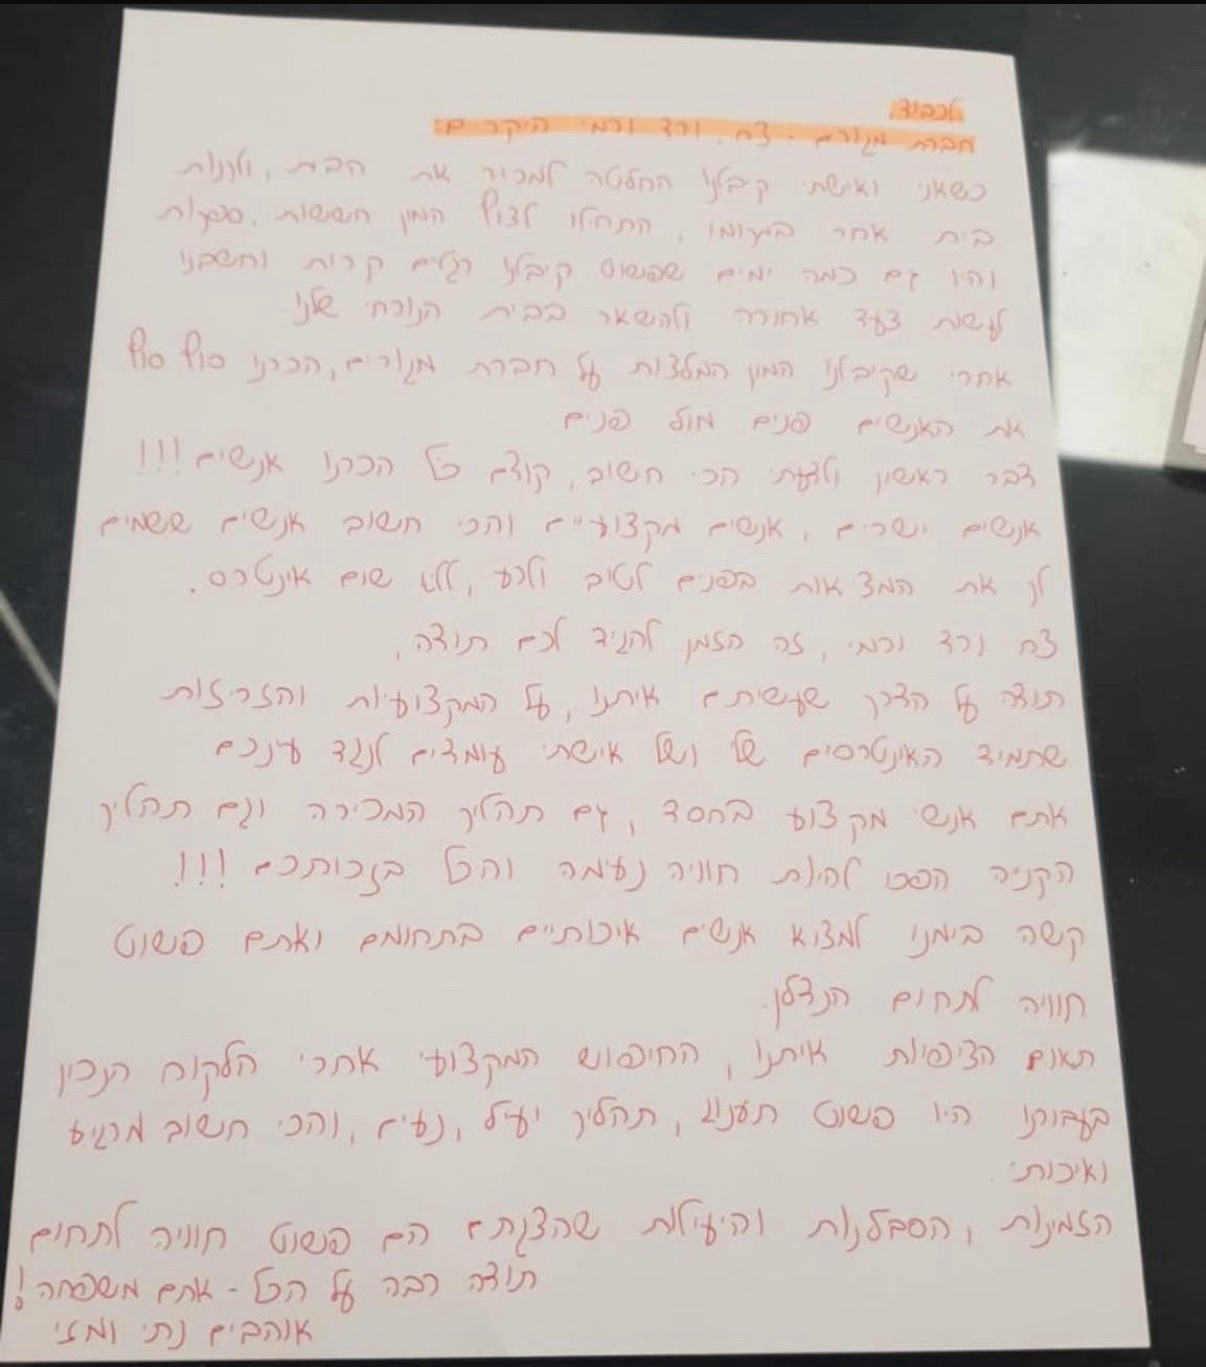 לכבוד:
חברת מגורים - צח, ורד ורמי היקרים:
כשאני ואישתי קיבלנו החלטה למכור את הבית, ולקנות
בית אחר במקומו, התחילו לצוף המון חששות, ספקות
והיו גם כמה ימים שפשוט קיבלנו רגלים קרות וחשבנו
לעשות צעד אחורה ולהשאר בבית הנוכחי שלנו
אחרי שקיבלנו המון המלצות על חברת מגורים, הכרנו סוף סוף
את האנשים פנים מול פנים
דבר ראשון ולדעתי הכי חשוב, קודם כל הכרנו אנשים!!!
אנשים ישרים, אנשים מקצועיים והכי חשוב אנשים ששמים
לך את המציאות בפנים לטוב ולרע, ללא שום אינטרס.
צח ורד ורמי, זה הזמן להגיד לכם תודה,
תודה על הדרך שעשיתם איתנו, על המקצועיות והזריזות
שתמיד האינטרסים שלי ושל אישתי עומדים לנגד עינכם
אתם אנשי מקצוע בחסד, גם תהליך המכירה וגם תהליך
הקניה הפכו להיות חוויה נעימה והכל בזכותכם!!!
קשה בימנו למצוא אנשים איכותיים בתחומם ואתם פשוט
חוויה לתחום הנדלן.
תאום הציפיות איתנו, החיפוש המקצועי אחרי הלקוח הנכון
בעבורנו היו פשוט תענוג, תהליך יעיל, נעים, והכי חשוב מרגיע
ואיכותי.
הזמינות, הסבלנות והיעילות שהצגתם הם פשוט חוויה לתחום
תודה רבה על הכל - אתם משפחה!
אוהבים נתי ומזי